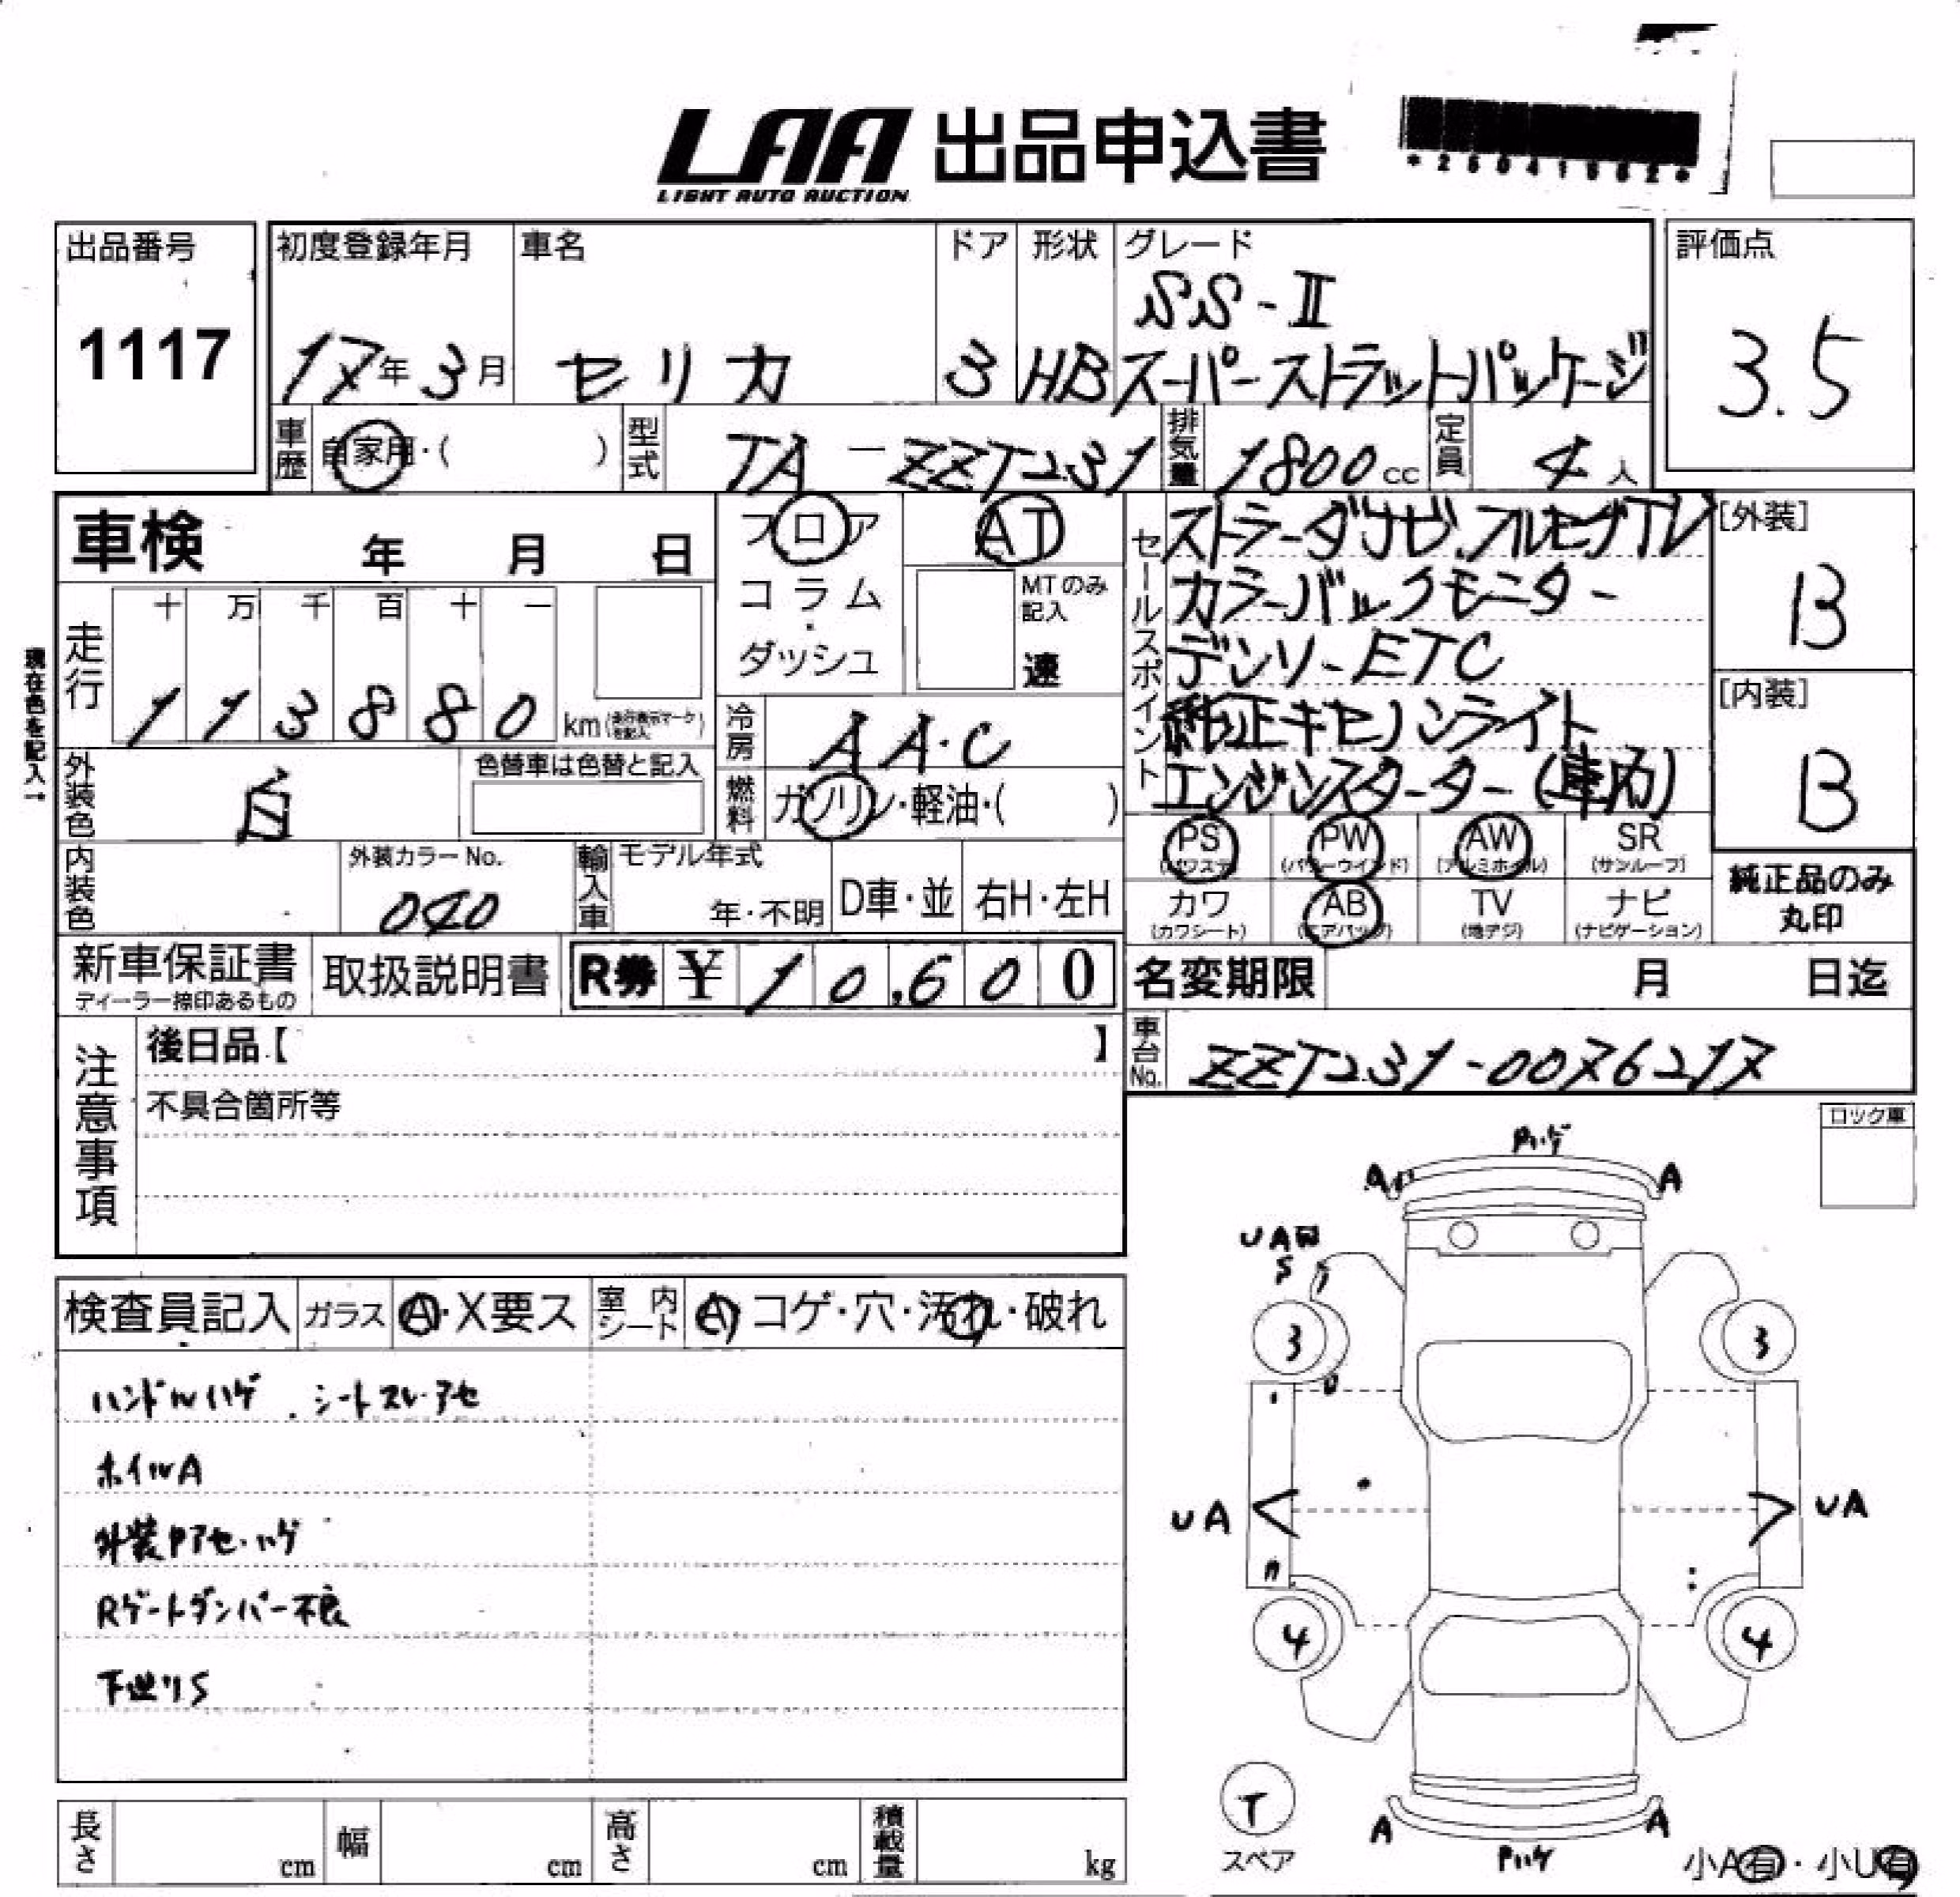 LAA 出品申込書
LIGHT AUTO AUCTION
*25041962*
出品番号
1117
初度登録年月
17年3月
車名
セリカ
ドア
3
形状
HB
グレード
SS-Ⅱ
スーパーストラットパッケージ
評価点
3.5
車歴
自家用・( )
型式
TA-ZZT231
排気量
1800cc
定員
4人
車検 年 月 日
フロア
コラム・
ダッシュ
AT
MTのみ
記入
速
走行
十 万 千 百 十 一
1 1 3 8 8 0 km(走行表示マークを記入)
現在色を記入→
冷房
AAC
外装色
白
色替車は色替と記入
燃料
ガソリン・軽油・( )
内装色
外装カラーNo.
040
輸入車
モデル年式
年・不明
D車・並
右H・左H
新車保証書
ディーラー捺印あるもの
取扱説明書
R券 ¥10,600
セールスポイント
ストラーダナビ.フルセグTV
カラーバックモニター
デンソーETC
純正キセノンライト
エンジンスターター(車内)
[外装]
B
[内装]
B
PS (パワステ)
PW (パワーウインド)
AW (アルミホイル)
SR (サンルーフ)
カワ (カワシート)
AB (エアバッグ)
TV (地デジ)
ナビ (ナビゲーション)
純正品のみ
丸印
名変期限 月 日迄
車台No.
ZZT231-0076217
注意事項
後日品【 】
不具合箇所等
ロック車
検査員記入
ガラス A・X要ス
室内シート A コゲ・穴・汚れ・破れ
ハンドルハゲ.シートスレ・アセ
ホイルA
外装Pアセ・ハゲ
Rゲートダンパー不良
下廻りS
長さ cm
幅 cm
高さ cm
積載量 kg
Pハゲ
A A
UA
S
3 3
UA UA
4 4
T
スペア
A A
Pハゲ
小A有・小U有